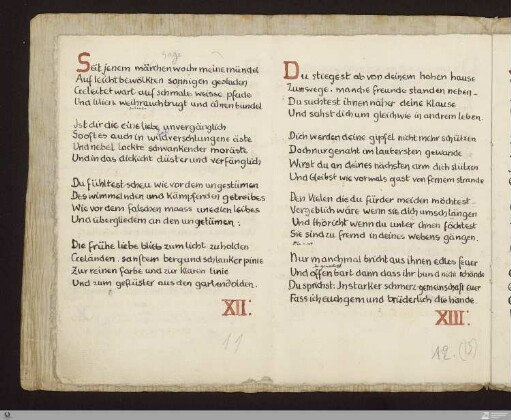 Seit jenem märchen wach meine mündel
Auf leicht bewölkten sonnigen geoladen
Geleitet wart auf schmale weisse pfade
Und lilien weihrauchbrugt und ähren bündel
Ist dir die eine liebe unvergänglich
So oft es auch in wildverschlungene äste
Und nebel lockte schwankender moräste
Und in das dickicht düster und verfänglich
Du fühltest scheu wie vor dem ungestümen
Des wimmelnden und kämpfenden getreibes
Wie vor dem falschen maass unedlen leibes
Und übergliedern an den ungetümen ;
Die frühe liebe blieb zum licht zu holden
Geländen . sanftem berg und schlanker pinie
Zur reinen farbe und zur klaren linie
Und zum geflüster aus den gartendolden .
XII:
11
Du stiegest ab von deinem hohen hause
Zum wege . manche freunde standen neben -
Du suchtest ihnen näher deine klause
Und sahst dich um gleichwie in andrem leben .
Dich werden deine gipfel nicht mehr schützen
Doch nur genaht im lautersten gewande
Wirst du an deines nächsten arm dich stützen
Und bleibst wie vormals gast von fernem strande
Den Vielen die du fürder meiden möchtest -
Vergeblich wäre wenn sie dich umschlängen
Und thöricht wenn du unter ihnen föchtest
Sie sind zu fremd in deines webens gängen .
Nur manchmal bricht aus ihnen edles feuer
Und offenbart dann dass ihr bund nicht schände
Du sprichst: In starker schmerzgemeinschaft euer
Fass ich euch gern und brüderlich die hände .
XIII:
12. (13)